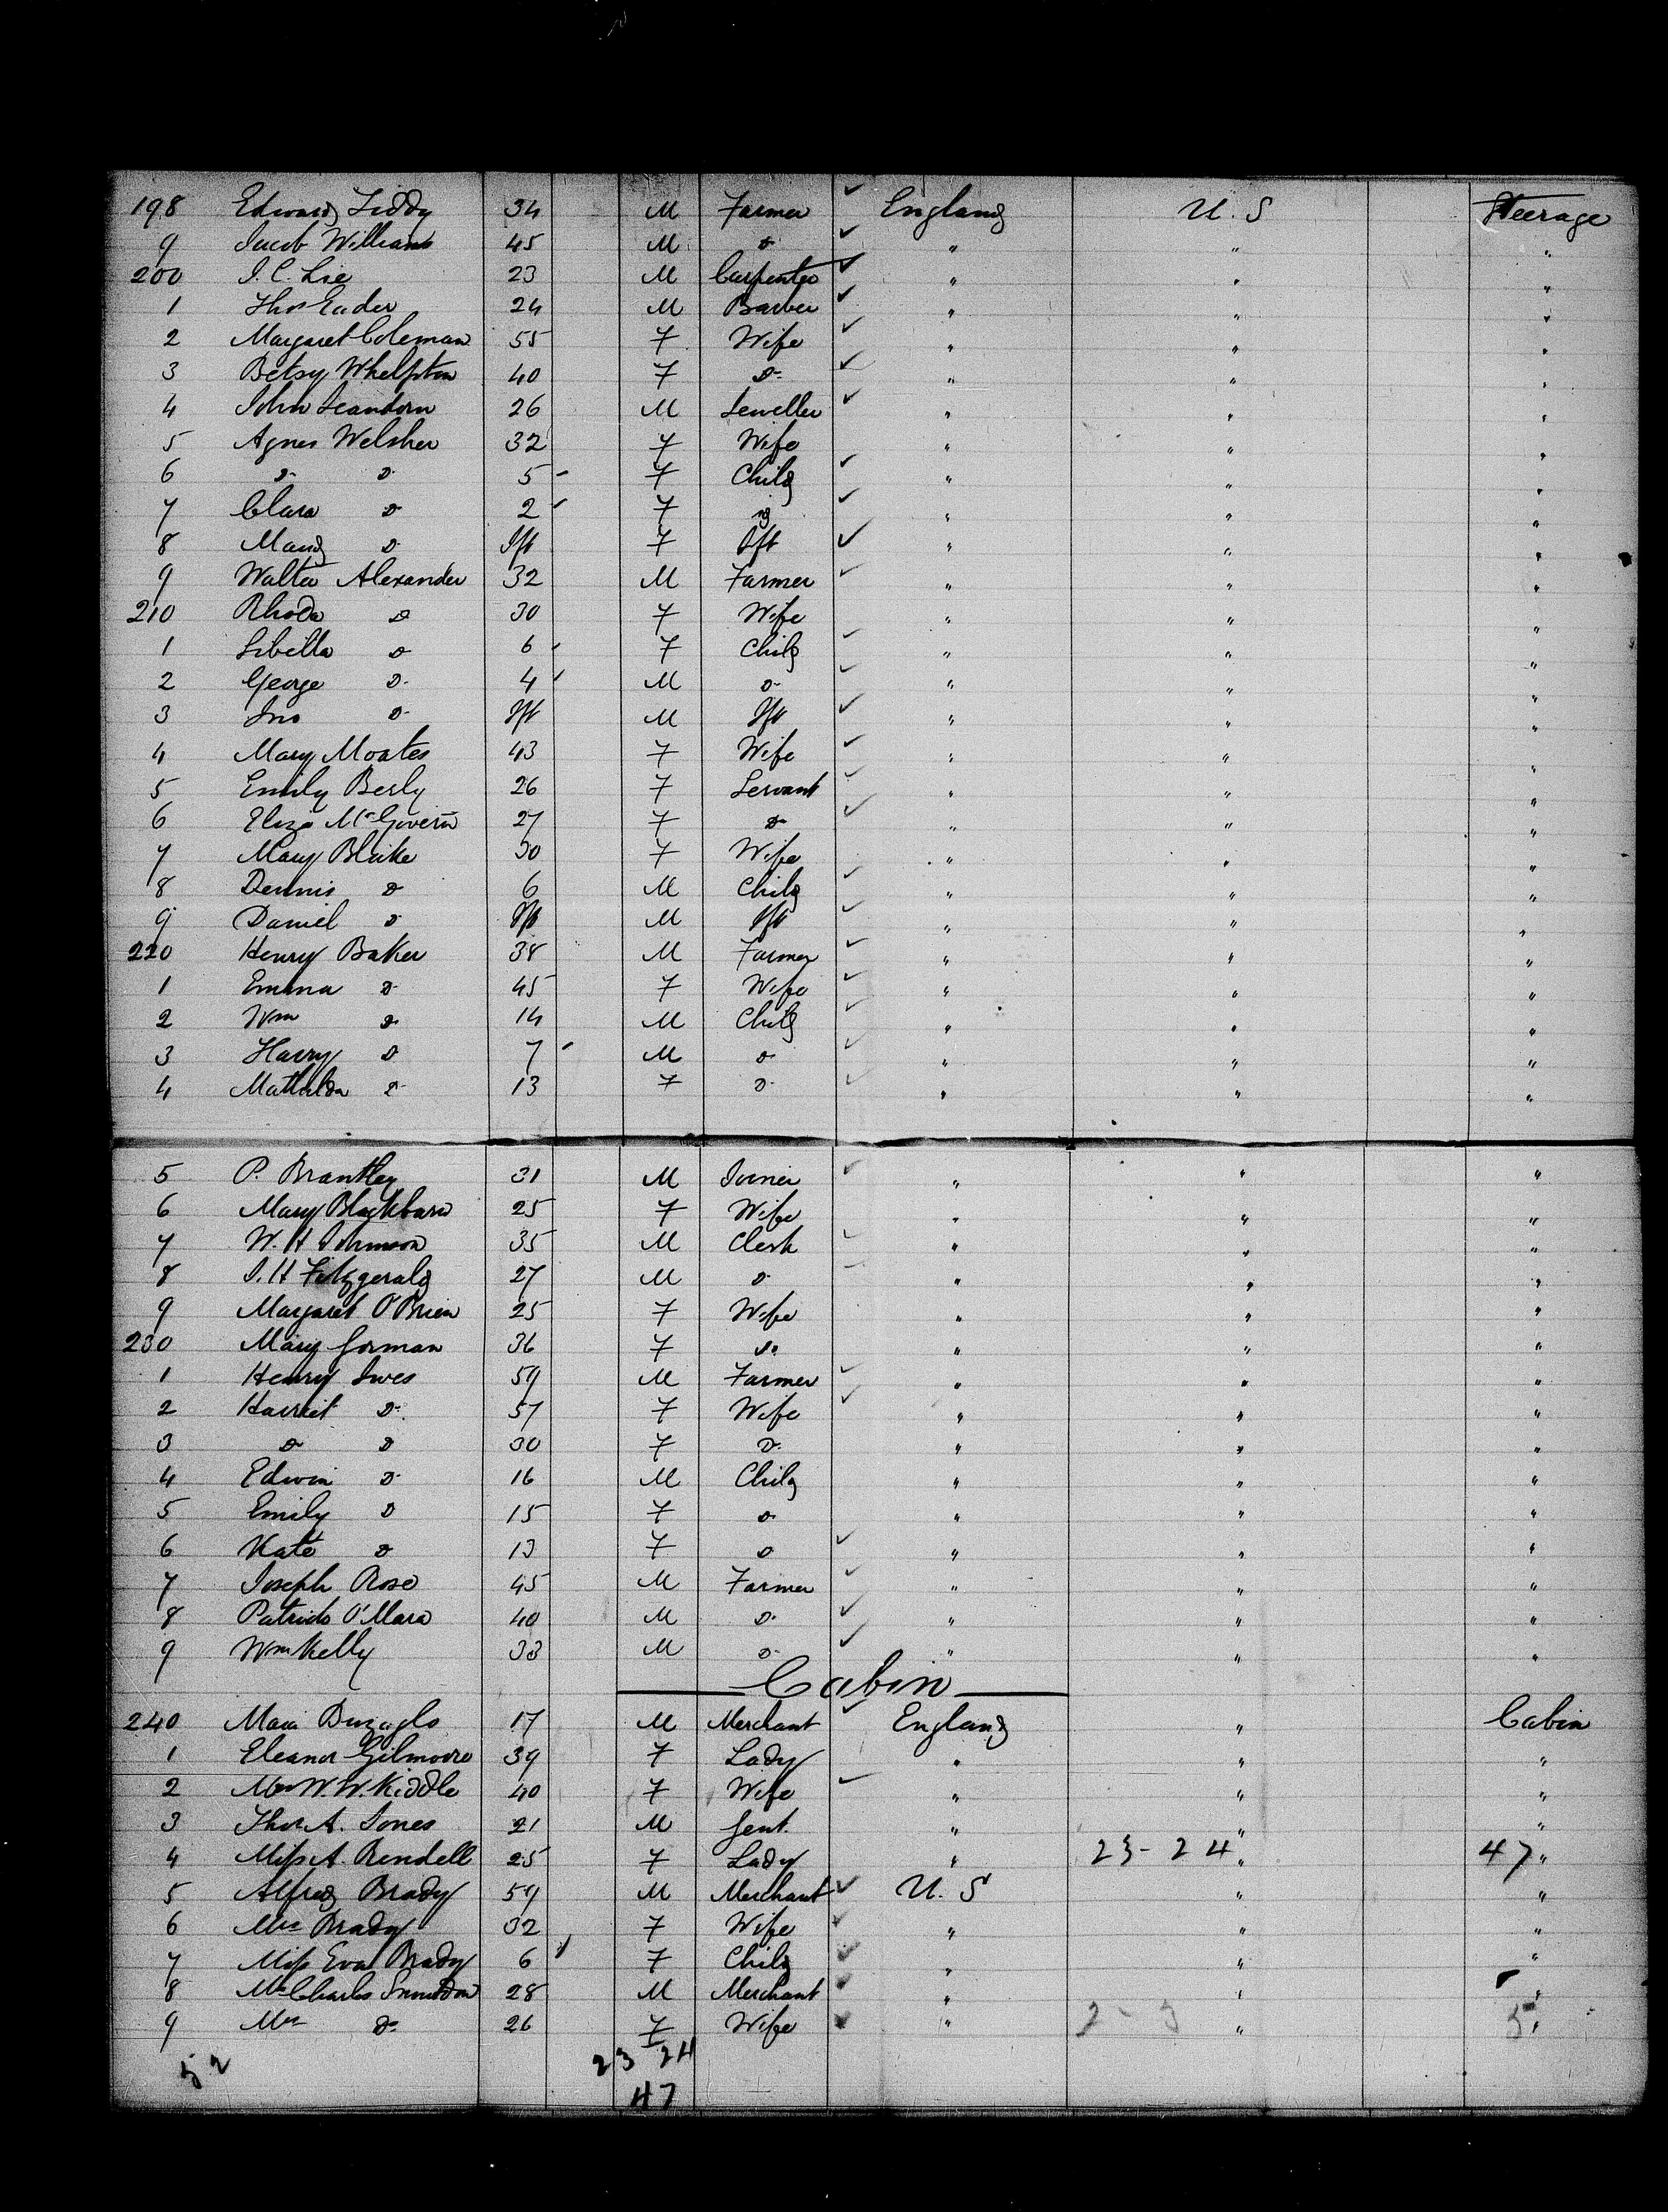 198 Edward Liddy 34 M Farmer England U.S Steerage
9 Jacob Williams 45 M Do " " "
200 J. C. Lee 23 M Carpenter " " "
1 Thos Eader 24 M Barber " " "
2 Margaret Coleman 55 F Wife " " "
3 Betsy Whelpton 40 F Do " " "
4 John 26 M Jeweller " " "
5 Agnes Welsher 32 F Wife " " "
6 Do Do 5 F Child " " "
7 Clara Do 2 F " " "
8 Maud Do Ift F Ift " " "
9 Walter Alexander 32 M Farmer " " "
210 Rhoda Do 30 F Wife " " "
1 Sibella Do 6 F Child " " "
2 George Do 4 M Do " " "
3 Jno Do Ift M Ift " " "
4 Mary Moates 43 F Wife " " "
5 Emily Berly 26 F Servant " " "
6 Eliza McGovern 27 F Do " " "
7 Mary Blake 30 F Wife " " "
8 Dennis Do 6 M Child " " "
9 Daniel Do Ift M Ift " " "
220 Henry Baker 38 M Farmer " " "
1 Emma Do 45 F Wife " " "
2 Wm Do 14 M Child " " "
3 Harry Do 7 M Do " " "
4 Mathilda Do 13 F Do " " "
5 P. Brantley 31 M Joiner " " "
6 Mary Blackburn 25 F Wife " " "
7 W. H Johnson 35 M Clerk " " "
8 J. H Fitzgerald 27 M Do " " "
9 Margaret O'Brien 25 F Wife " " "
230 Mary Gorman 36 F Do " " "
1 Henry Ives 59 M Farmer " " "
2 Harriet Do 57 F Wife " " "
3 Do Do 30 F Do " " "
4 Edwin Do 16 M Child " " "
5 Emily Do 15 F Do " " "
6 Kate Do 13 F Do " " "
7 Joseph Rose 45 M Farmer " " "
8 Patrick O'Mara 40 M Do " " "
9 Wm Kelly 33 M Do " " "
Cabin
240 17 M Merchant England " Cabin
1 Eleanor Gilmoore 39 F Lady " " "
2 Mrs W. W. Kiddle 40 F Wife " " "
3 Thos A. Jones 21 M Gent. " " "
4 Miss A. Rendell 25 F Lady " 23-24 " 47 "
5 Alfred Brady 59 M Merchant U.S " "
6 Mrs Brady 32 F Wife " " "
7 Miss Eva Brady 6 F Child " " "
8 Mr Charles Snowdon 28 M Merchant " " "
9 Mrs Do 26 F Wife " 2-3 " 5 "
52 23 24
47